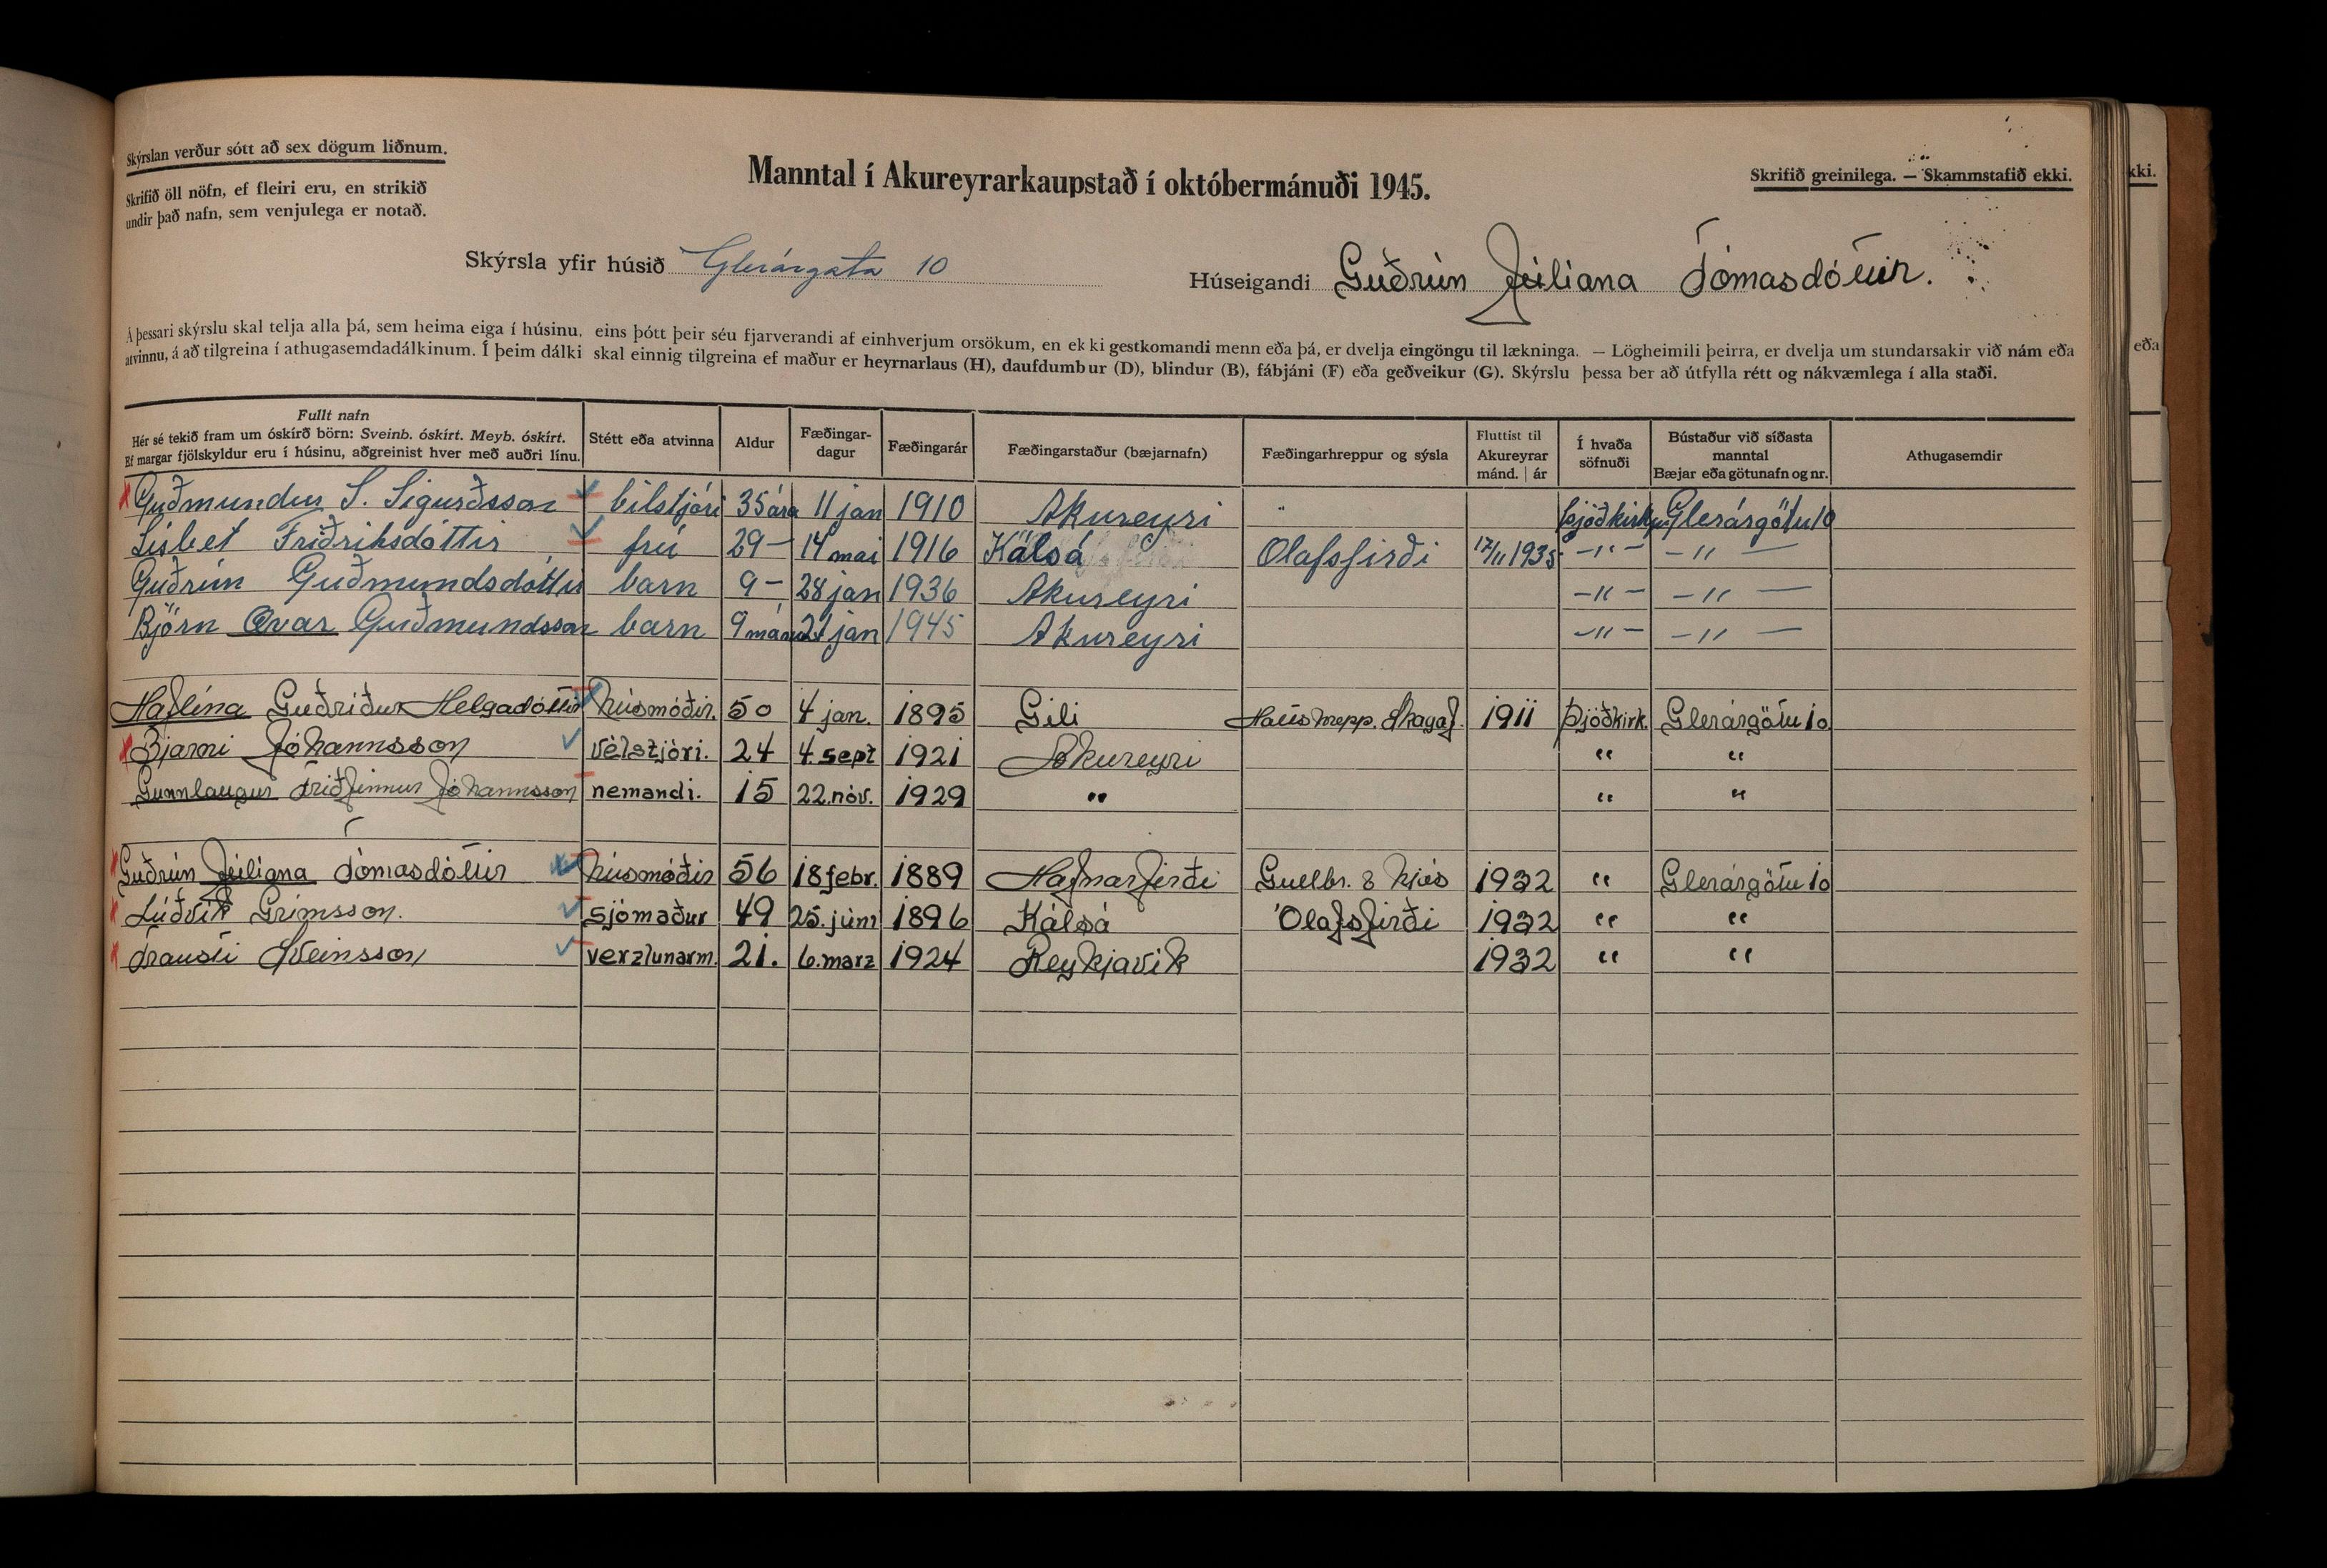 Skýrslan verður sótt að sex dögum liðnum.
Skrifið öll nöfn, ef fleiri eru, en strikið
undir það nafn, sem venjulega er notað.
Manntal í Akureyrarkaupstað í októbermánuði 1945.
Skrifið greinilega. — Skammstafið ekki.
kki.
Skýrsla yfir húsið Glerárgata 10
Húseigandi Guðrún Júlíana Tómasdóttir.
Á þessari skýrslu skal telja alla þá, sem heima eiga í húsinu, eins þótt þeir séu fjarverandi af einhverjum orsökum, en ekki gestkomandi menn eða þá, er dvelja eingöngu til lækninga. — Lögheimili þeirra, er dvelja um stundarsakir við nám eða
atvinnu, á að tilgreina í athugasemdadálkinum. Í þeim dálki skal einnig tilgreina ef maður er heyrnarlaus (H), daufdumbur (D), blindur (B), fábjáni (F) eða geðveikur (G). Skýrslu þessa ber að útfylla rétt og nákvæmlega í alla staði.
eða
Fullt nafn
Hér sé tekið fram um óskírð börn: Sveinb. óskírt. Meyb. óskírt.
Ef margar fjölskyldur eru í húsinu, aðgreinist hver með auðri línu.
Stétt eða atvinna
Aldur
Fæðingar-
dagur
Fæðingarár
Fæðingarstaður (bæjarnafn)
Fæðingarhreppur og sýsla
Fluttist til
Akureyrar
mánd. | ár
Í hvaða
söfnuði
Bústaður við síðasta
manntal
Bæjar eða götunafn og nr.
Athugasemdir
Guðmundur S. Sigurðsson bílstjóri 35 ára 11 jan 1910 Akureyri " Þjóðkirkju Glerárgötu 10
Lísbet Friðriksdóttir frú 29 — 14 mai 1916 Kálsá Olafsfirði 17/11 1935 —"— —"—
Guðrún Guðmundsdóttir barn 9 — 28 jan 1936 Akureyri —"— —"—
Björn Ævar Guðmundsson barn 9 mán 21 jan 1945 Akureyri —"— —"—
Haflína Guðríður Helgadóttir húsmóðir. 50 4 jan. 1895 Gili Skagaf. 1911 Þjóðkirk. Glerárgötu 10
Bjarni Jóhannsson vélstjóri. 24 4. sept 1921 Akureyri " "
Gunnlaugur Friðfinnur Jóhannsson nemandi. 15 22. nóv. 1929 " " "
Guðrún Júlíana Tómasdóttir húsmóðir 56 18 febr. 1889 Hafnarfirði Gullbr. & Kjós 1932 " Glerárgötu 10
Lúðvík Grímsson. sjómaður 49 25. júni 1896 Kálsá Olafsfirði 1932 " "
Trausti Sveinsson verzlunarm. 21. 6. marz 1924 Reykjavík 1932 " "